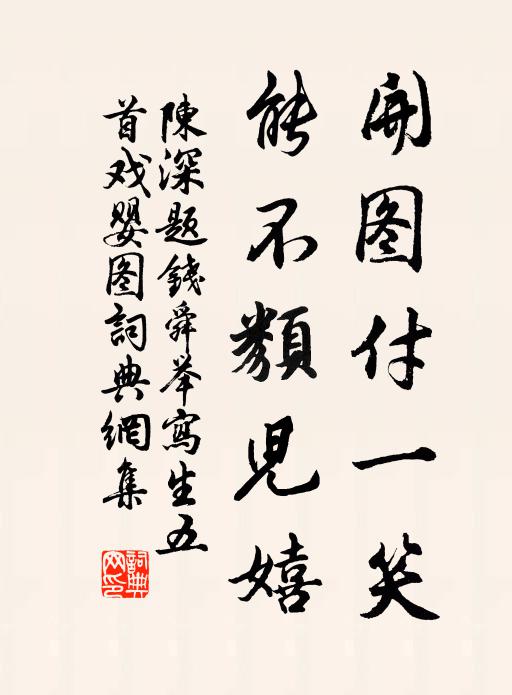 開图付一笑
能不類兒嬉
陳深题錢舜举寫生五
首戏嬰图詞典網集
詞典
网印